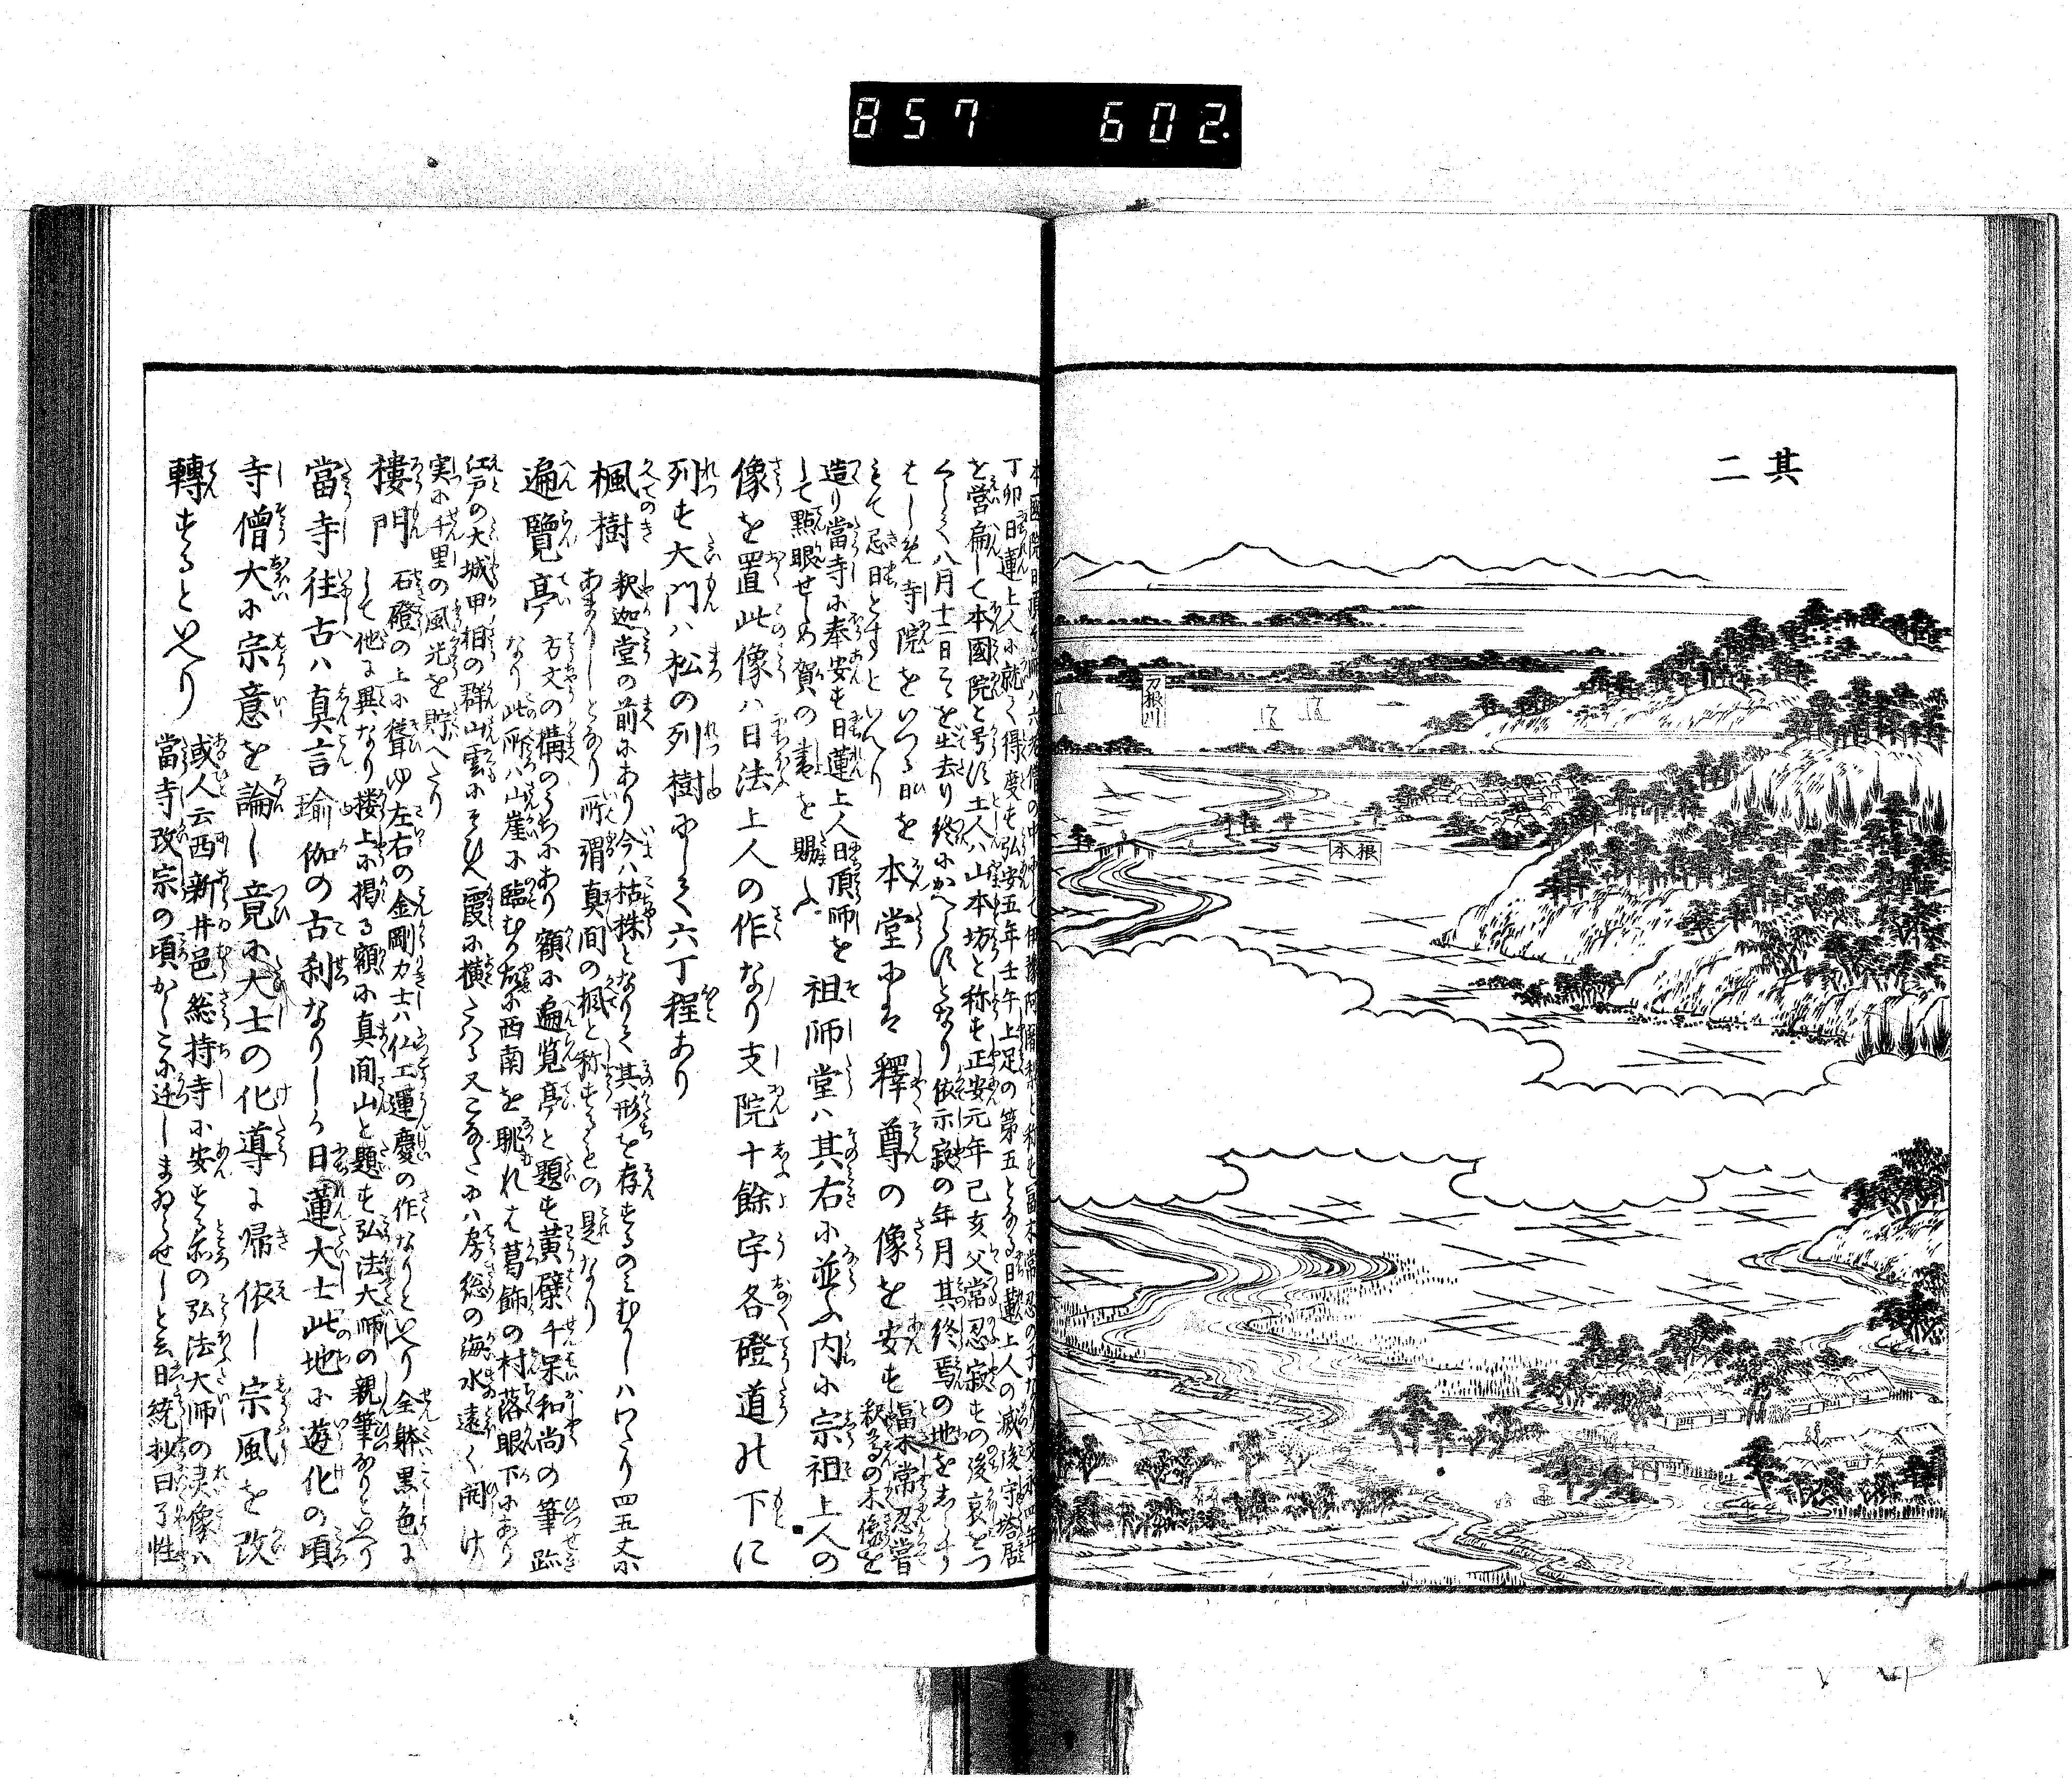 857 602.
其二
刀根川
根本
丁卯日蓮上人に就く得度す弘安五年壬午上足の第五となる日蓮上人の滅後守塔居
を営扁して本國院と号け土人ハ山本坊と称す正安元年己亥父常忍寂もの後哀をつ
くしく八月十一日こゝを出去り終にかへらけとなり依示寂の年月其終焉の地をしらす
もしれ寺院をいつる日を
もて忌日とすといへり
本堂にハ釋尊の像を安す
冨木常忍嘗
釈尊の木像を
造り當寺に奉安す日蓮上人日頂師を
して點眼せしめ賀の書を賜ふ
祖師堂ハ其右に並ふ内に宗祖上人の
像を置此像ハ日法上人の作なり支院十餘宇各磴道の下に
列す大門ハ松の列樹にしく六丁程あり
楓樹
釈迦堂の前にあり今ハ枯株となりて其形を存するのミむかしハわたり四五丈に
あまりしとなり所謂真間の楓と称するもの是なり
遍覽亭
方丈の構のうちにあり額に遍覧亭と題す黄檗千呆和尚の筆跡
なり此所ハ山崖に臨むか故に西南を眺れは葛飾の村落眼下にあり
江戸の大城甲相の群山雲にそひえ霞に横たハる又こなたにハ房総の海水遠く開け
実に千里の風光を貯へたり
樓門
石磴の上に聳ゆ左右の金剛力士ハ仏工運慶の作なりといへり全躰黒色に
して他に異なり楼上に掲る額に真間山と題す弘法大師の親筆なりといへり
當寺往古ハ真言瑜伽の古刹なりしか日蓮大士此地に遊化の頃
寺僧大に宗意を論し竟に大士の化導に帰依し宗風を改
轉するといへり
或人云西新井邑総持寺に安する所の弘法大師の霊像ハ
當寺改宗の頃かしこに迁しまゐらせしと云日統抄曰了性